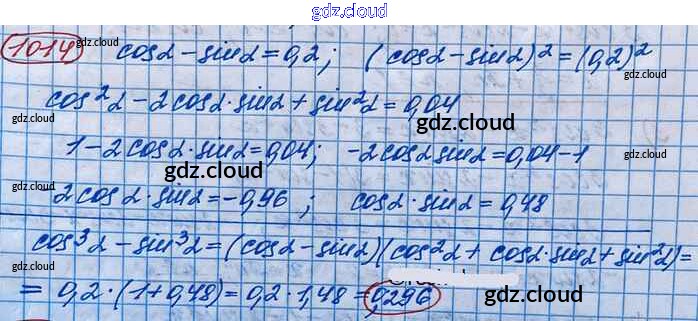 gdz.cloud
1014 cosα - sinα = 0,2; (cosα - sinα)² = (0,2)²
gdz.cloud gdz.cloud
cos²α - 2cosα·sinα + sin²α = 0,04
gdz.cloud gdz.cloud
1 - 2cosα·sinα = 0,04; -2cosα sinα = 0,04 - 1
gdz.cloud gdz.cloud
2cosα·sinα = -0,96; cosα·sinα = 0,48
gdz.cloud gdz.cloud
cos³α - sin³α = (cosα - sinα)(cos²α + cosα·sinα + sin²α) =
gdz.cloud
= 0,2·(1 + 0,48) = 0,2·1,48 = 0,296
gdz.cloud
gdz.cloud